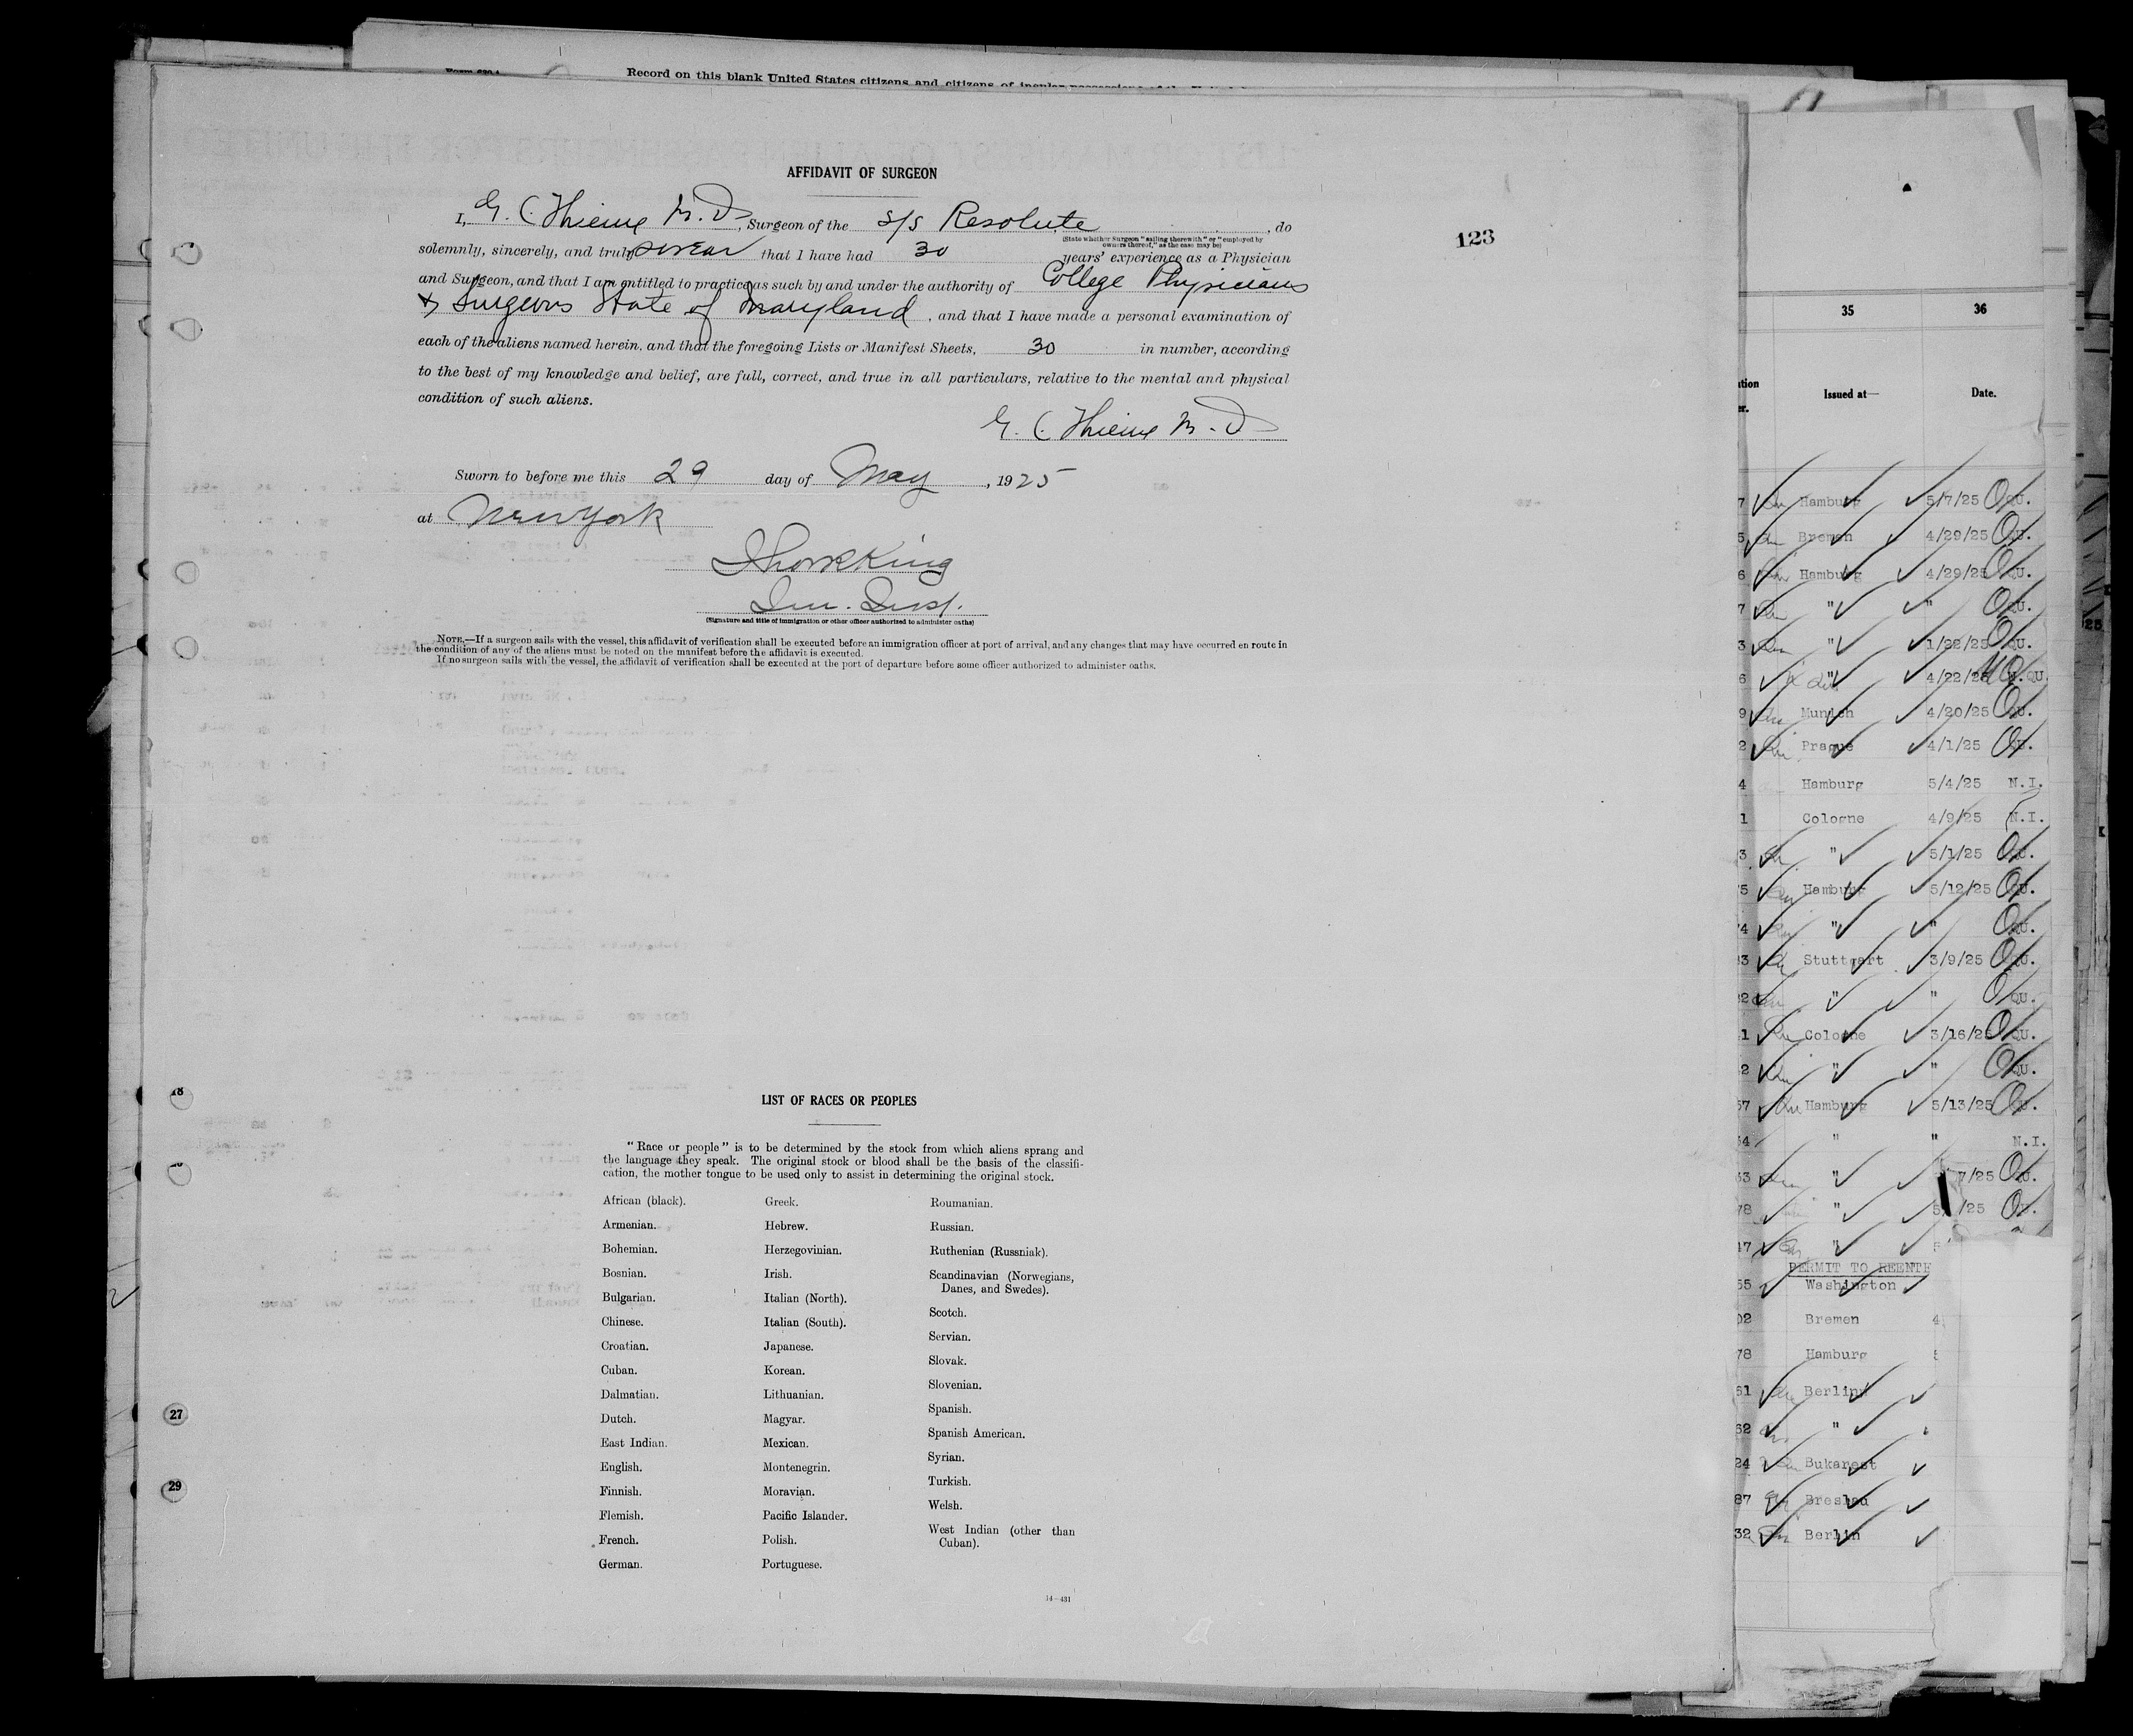 Record on this blank United States citizens and citizens of insular possessions of the
AFFIDAVIT OF SURGEON
I, G. C. Thieme M. D., Surgeon of the S/S Resolute, do
(State whether Surgeon "sailing therewith" or "employed by
owners thereof," as the case may be)
123
solemnly, sincerely, and truly swear that I have had 30 years' experience as a Physician
and Surgeon, and that I am entitled to practice as such by and under the authority of College Physicians
& Surgeons State of Maryland, and that I have made a personal examination of
each of the aliens named herein, and that the foregoing Lists or Manifest Sheets, 30 in number, according
to the best of my knowledge and belief, are full, correct, and true in all particulars, relative to the mental and physical
condition of such aliens.
G. C. Thieme M. D
Sworn to before me this 29 day of May, 1925
at New York
Imm. Insp.
(Signature and title of immigration or other officer authorized to administer oaths)
NOTE.—If a surgeon sails with the vessel, this affidavit of verification shall be executed before an immigration officer at port of arrival, and any changes that may have occurred en route in
the condition of any of the aliens must be noted on the manifest before the affidavit is executed.
If no surgeon sails with the vessel, the affidavit of verification shall be executed at the port of departure before some officer authorized to administer oaths.
18
27
29
LIST OF RACES OR PEOPLES
"Race or people" is to be determined by the stock from which aliens sprang and
the language they speak. The original stock or blood shall be the basis of the classifi-
cation, the mother tongue to be used only to assist in determining the original stock.
African (black).
Armenian.
Bohemian.
Bosnian.
Bulgarian.
Chinese.
Croatian.
Cuban.
Dalmatian.
Dutch.
East Indian.
English.
Finnish.
Flemish.
French.
German.
Greek.
Hebrew.
Herzegovinian.
Irish.
Italian (North).
Italian (South).
Japanese.
Korean.
Lithuanian.
Magyar.
Mexican.
Montenegrin.
Moravian.
Pacific Islander.
Polish.
Portuguese.
Roumanian.
Russian.
Ruthenian (Russniak).
Scandinavian (Norwegians,
Danes, and Swedes).
Scotch.
Servian.
Slovak.
Slovenian.
Spanish.
Spanish American.
Syrian.
Turkish.
Welsh.
West Indian (other than
Cuban).
14—431
35 36
Issued at— Date.
7 Hamburg 5/7/25 QU.
5 Bremen 4/29/25 QU.
6 Hamburg 4/29/25 QU.
7 " " QU.
3 " 1/22/25 QU.
6 " 4/22/25 QU.
9 Munich 4/20/25 QU.
2 Prague 4/1/25 QU.
4 Hamburg 5/4/25 N.I.
1 Cologne 4/9/25 N.I.
3 " 5/1/25 QU.
5 Hamburg 5/12/25 QU.
4 " " QU.
3 Stuttgart 3/9/25 QU.
2 " " QU.
1 Cologne 3/16/25 QU.
2 " " QU.
57 Hamburg 5/13/25 QU.
54 " " N.I.
53 " 7/25 QU.
78 " 5 /25 QU.
47 "
PERMIT TO REENTE
55 Washington
02 Bremen 4
78 Hamburg
61 Berlin
62 "
24 Bukarest
87 Breslau
32 Berlin